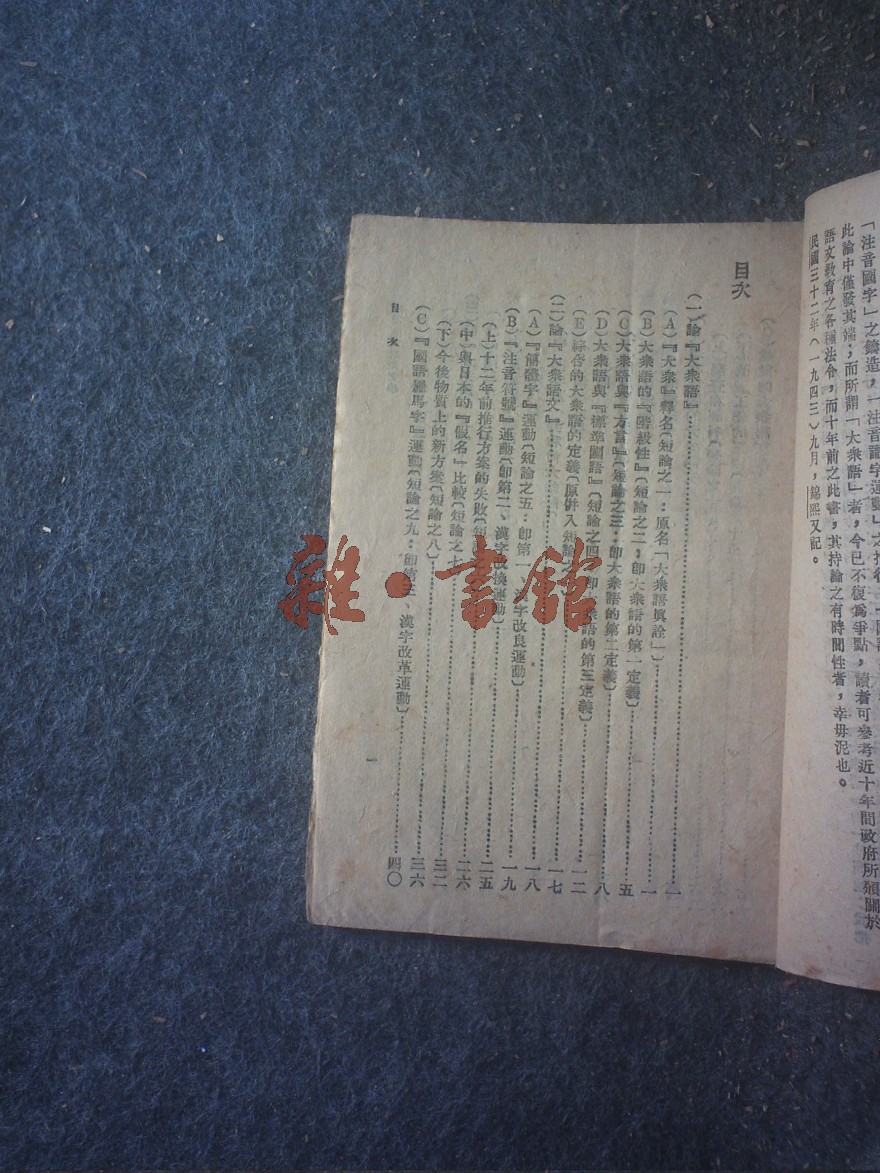 「注音國字」之鑄造,「注音識字運動」之推行,
此論中僅發其端;而所謂「大衆語」者,今已不復爲爭點,讀者可參考近十年間政府所頒關於
語文教育之各種法令,而十年前之此書,其持論之有時間性者,幸毋泥也。
民國三十二年(一九四三)九月,錦熙又記。
目次
(一)論『大衆語』……一
(A)『大衆』釋名〔短論之一:原名「大衆語眞詮」〕……一
(B)大衆語的『階級性』〔短論之二:卽大衆語的第一定義〕……五
(C)大衆語與『方言』〔短論之三:卽大衆語的第二定義〕……八
(D)大衆語與『標準國語』〔短論之四:卽大衆語的第三定義〕……一二
(E)綜合的大衆語的定義〔原併入短論之……一七
(二)論『大衆語文』……一八
(A)『簡體字』運動〔短論之五:卽第一、漢字改良運動〕……一九
(B)『注音符號』運動〔卽第二、漢字改換運動〕……二五
(上)十二年前推行方案的失敗〔短論……二六
(中)與日本的『假名』比較〔短論之七……三二
(下)今後物質上的新方案〔短論之八〕……三六
(C)『國語羅馬字』運動〔短論之九:卽第三、漢字改革運動〕……四〇
目次
一
雜·書館